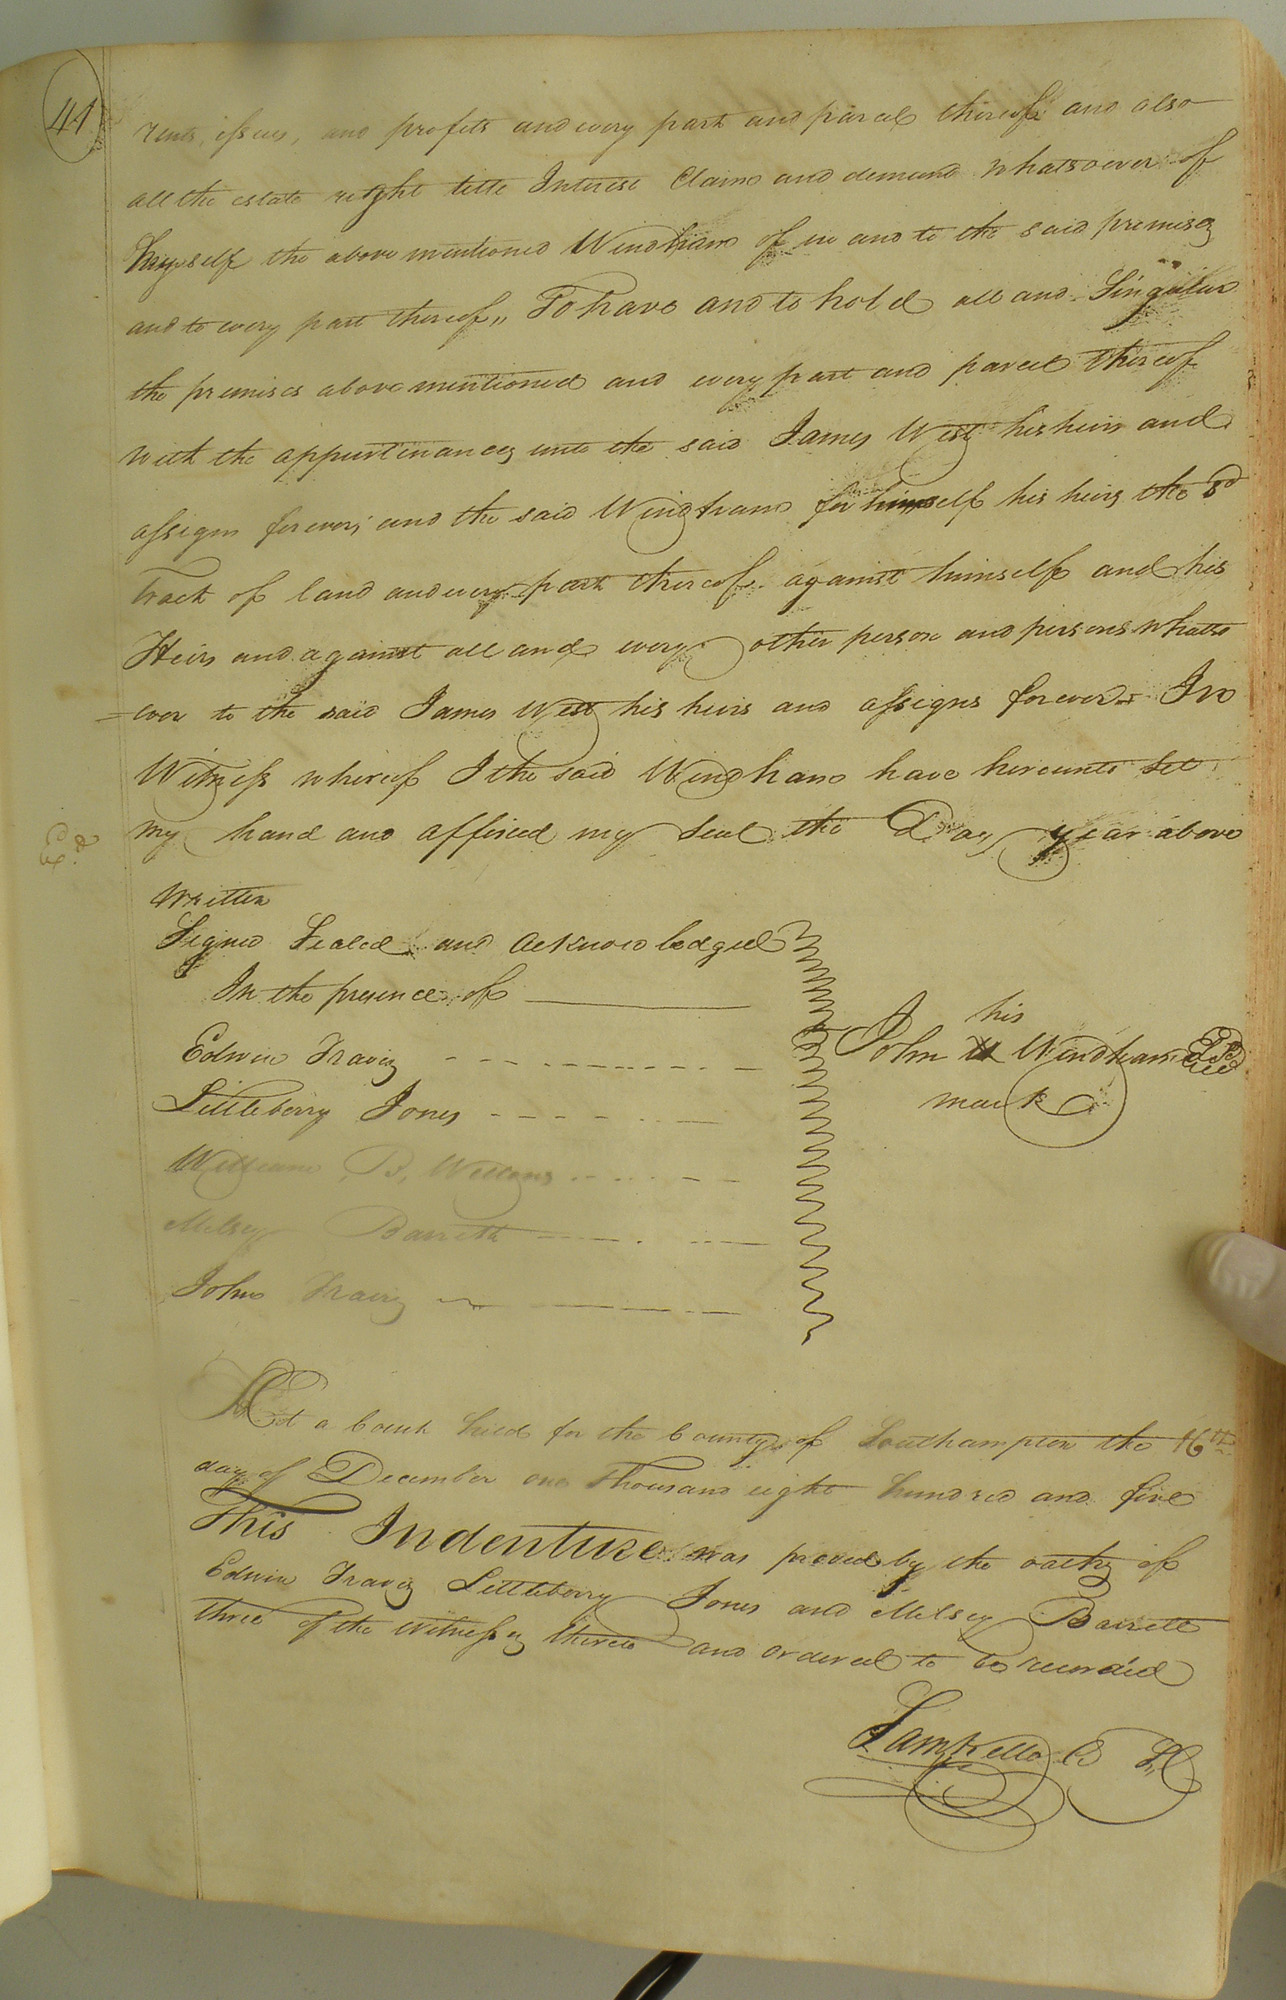 41
rents, issues, and profits and every part and parcel thereof and also
all the estate right title Interest Claim and demand whatsoever of
himself the above mentioned Windham of in and to the said premises
and to every part thereof,, To have and to hold all and Singular
the premises above mentioned and every part and parcel thereof
With the appurtinances unto the said James West his heirs and
assigns forever; and the said Windham for himself his heirs the sd
tract of land and every part thereof against himself and his
Heirs and against all and every other person and persons whatso
=ever to the said James West his heirs and assigns forever In
Witness whereof I the said Windham have hereunto Set
my hand and affixed my Seal the Day year above
Written
Signed Sealed and Acknowledged
In the presence of
Edwin Travis
Littleberry Jones
William B, Wellons
Melsey Barrett
John Travis
his
John Windham
mark
At a Court held for the County of Southampton the 16th
day of December one thousand eight hundred and five
This Indenture was proved by the oaths of
Edwin Travis Littleberry Jones and Melsey Barrett
three of the Witnesses thereto and ordered to be recorded